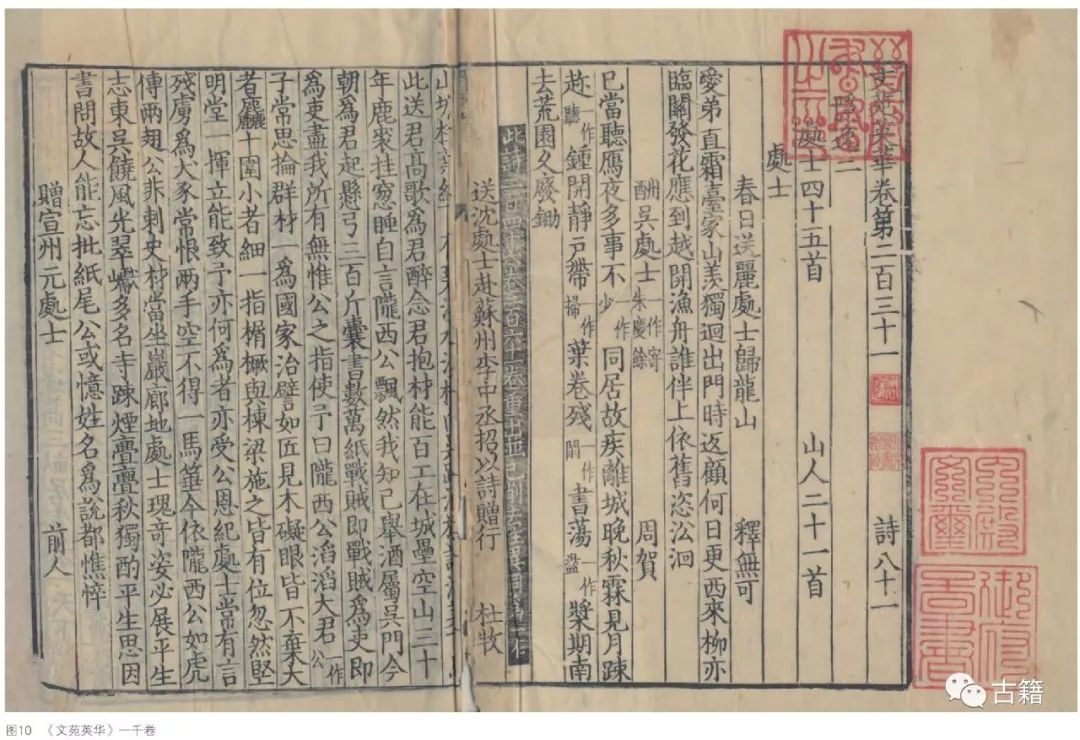 文苑英華卷第二百三十一　詩八十一
隱逸二
處士四十五首　山人二十一首
處士
春日送麗處士歸龍山　釋無可
愛弟直霜臺家山羡獨迴出門時返顧何日更西來柳亦
臨關發花應到越開漁舟誰伴上依舊恣沿洄
酬吳處士朱慶餘作寄　周賀
已當聽鴈夜多事不一作少同居故疾離城晚秋霖見月踈
趂一作聽鍾開靜户帶一作掃葉卷殘一作閒書蕩一作盪槳期南
去荒園久廢鋤
此詩二百六十卷重出
送沈處士赴蘇州李中丞招以詩贈行　杜牧
山城
此送君高歌爲君醉念君抱材能百工在城壘空山三十
年鹿裘挂窓睡自言隴西公飄然我知己舉酒屬吳門今
朝爲君起懸弓三百斤囊書數萬紙戰賊即戰賊爲吏即
爲吏盡我所有無惟公之指使予曰隴西公滔滔大君公一作
子常思掄群材一爲國家治譬如匠見木礙眼皆不棄大
者麤十圍小者細一指楣橛與棟梁施之皆有位忽然竪
明堂一揮立能致予亦何爲者亦受公恩紀處士常有言
殘虜爲犬豕常恨兩手空不得一馬箠今依隴西公如虎
傅兩翅公非刺史材當坐巖廊地處士瑰竒姿必展平生
志東吳饒風光翠巘多名寺踈煙亹亹秋獨酌平生思因
書問故人能忘批紙尾公或憶姓名爲說都憔悴
贈宣州元處士　前人
御府古書
古籍
图10 《文苑英华》一千卷